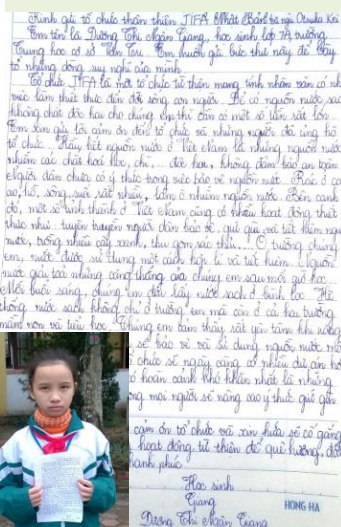 Kính gửi tổ chức thân thiện JIFA Nhật Bản bà nội Otsuka Kei
Em tên là Dương Thị Ngân Giang, học sinh lớp 7A, trường
Trung học cơ sở Yên Trú. Em muốn gửi bức thư này để bày
tỏ những dòng suy nghĩ của mình.
Tổ chức JIFA là một tổ chức từ thiện mang tính nhân văn có
việc làm thiết thực đến đời sống con người. Để có nguồn nước sạch
không chất độc hại cho chúng em thì cần có một số tiền rất lớn.
Em xin gửi lời cảm ơn đến tổ chức và những người đã ủng hộ
tổ chức. Hầu hết nguồn nước ở Việt Nam là những nguồn nước
nhiễm các chất hoá học, chì, độc hại, không đảm bảo an toàn.
Người dân chưa có ý thức trong việc bảo vệ nguồn nước. Rác ở
ao, hồ, sông, suối rất nhiều, làm ô nhiễm nguồn nước. Bên cạnh
đó, một số tỉnh thành ở Việt Nam cũng có nhiều hoạt động thiết
thực như: tuyên truyền người dân bảo vệ, giữ gìn và tiết kiệm nguồn
nước, trồng nhiều cây xanh, thu gom rác thải... Ở trường chúng
em, nước được sử dụng một cách hợp lí và tiết kiệm. Nguồn
nước giải toả những căng thẳng của chúng em sau mỗi giờ học.
Mỗi buổi sáng, chúng em đều lấy nước sạch ở bình lọc. Hệ
thống nước sạch không chỉ ở trường em mà còn ở cả hai trường
mầm non và tiểu học. Chúng em cảm thấy rất yên tâm khi uống
sẽ bảo vệ và sử dụng nguồn nước một
tổ chức sẽ ngày càng có nhiều dự án hỗ
có hoàn cảnh khó khăn nhất là những
ong mọi người sẽ nâng cao ý thức giữ gìn
cảm ơn tổ chức và xin hứa sẽ cố gắng
hoạt động từ thiện để quê hương, đất
hạnh phúc
Học sinh
Giang
Dương Thị Ngân Giang
HONG HA